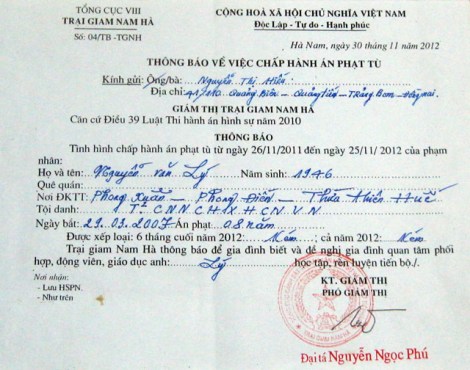 TỔNG CỤC VIII
TRẠI GIAM NAM HÀ
Số: 04/TB -TGNH
CỘNG HOÀ XÃ HỘI CHỦ NGHĨA VIỆT NAM
Độc Lập - Tự do - Hạnh phúc
Hà Nam, ngày 30 tháng 11 năm 2012
THÔNG BÁO VỀ VIỆC CHẤP HÀNH ÁN PHẠT TÙ
Kính gửi: Ông/bà: Nguyễn Thị Hiểu
Địa chỉ: Quảng Biên - Quảng Tiến - Trảng Bom - Đồng nai
GIÁM THỊ TRẠI GIAM NAM HÀ
Căn cứ Điều 39 Luật Thi hành án hình sự năm 2010
THÔNG BÁO
Tình hình chấp hành án phạt tù từ ngày 26/11/2011 đến ngày 25/11/ 2012 của phạm
nhân:
Họ và tên: Nguyễn Văn Lý Năm sinh: 1946
Quê quán:
Nơi ĐKTT: Phong Xuân - Phong Điền - Thừa Thiên Huế
Tội danh: T.C NN CHXHCNVN
Ngày bắt: 29.03.2007 Án phạt 08 năm
Được xếp loại: 6 tháng cuối năm 2012: Kém; cả năm 2012: Kém
Trại giam Nam Hà thông báo để gia đình biết và đề nghị gia đình quan tâm phối
hợp, động viên, giáo dục anh: Lý học tập, rèn luyện tiến bộ./.
Nơi nhận:
- Lưu HSPN.
- Như trên
KT. GIÁM THỊ
PHÓ GIÁM THỊ
Đại tá Nguyễn Ngọc Phú